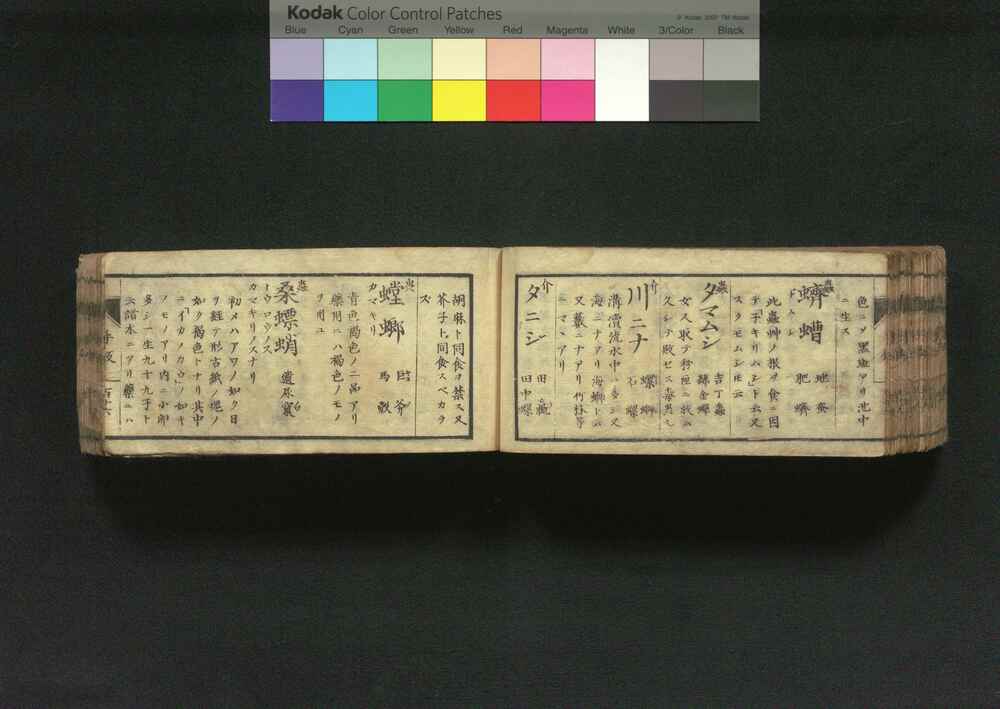 Kodak Color Control Patches
© Kodak, 2007 TM: Kodak
Blue Cyan Green Yellow Red Magenta White 3/Color Black
色ニ〆黒点アリ池中
ニ生ス
蟲
蠐螬
肥蠐
此蟲艸ノ根ヲ食ニ因
テ子キリムシト云又
スクモムシ
蟲
タマムシ
吉丁蟲
緑金蟬
女人取テ粉匣ニ収ム
久シテ敗セス
介
川ニナ
石螺
溝瀆流水中ニ多シ又
海ニナアリ海螄ト云
又藪ニナアリ竹林等
ニマヽアリ
介
タニシ
田螺
田中螺
胡麻ト同食ヲ禁ス又
芥子ト同食スベカラ
ズ
蟲
螳螂
カマキリ
拒斧
馬敫
青色褐色ノ二品アリ
藥用ニハ褐色ノモノ
ヲ用ユ
蟲
桑螵蛸
カマキリノスナリ
初メハアワノ如ク日
ヲ経テ形古紙ノ塊ノ
如ク褐色トナリ其中
ニイカノカウノ如キ
モノアリ内ニ小卵
多シ一生九十九子ト
云諸木ニアリ藥ニハ
百六